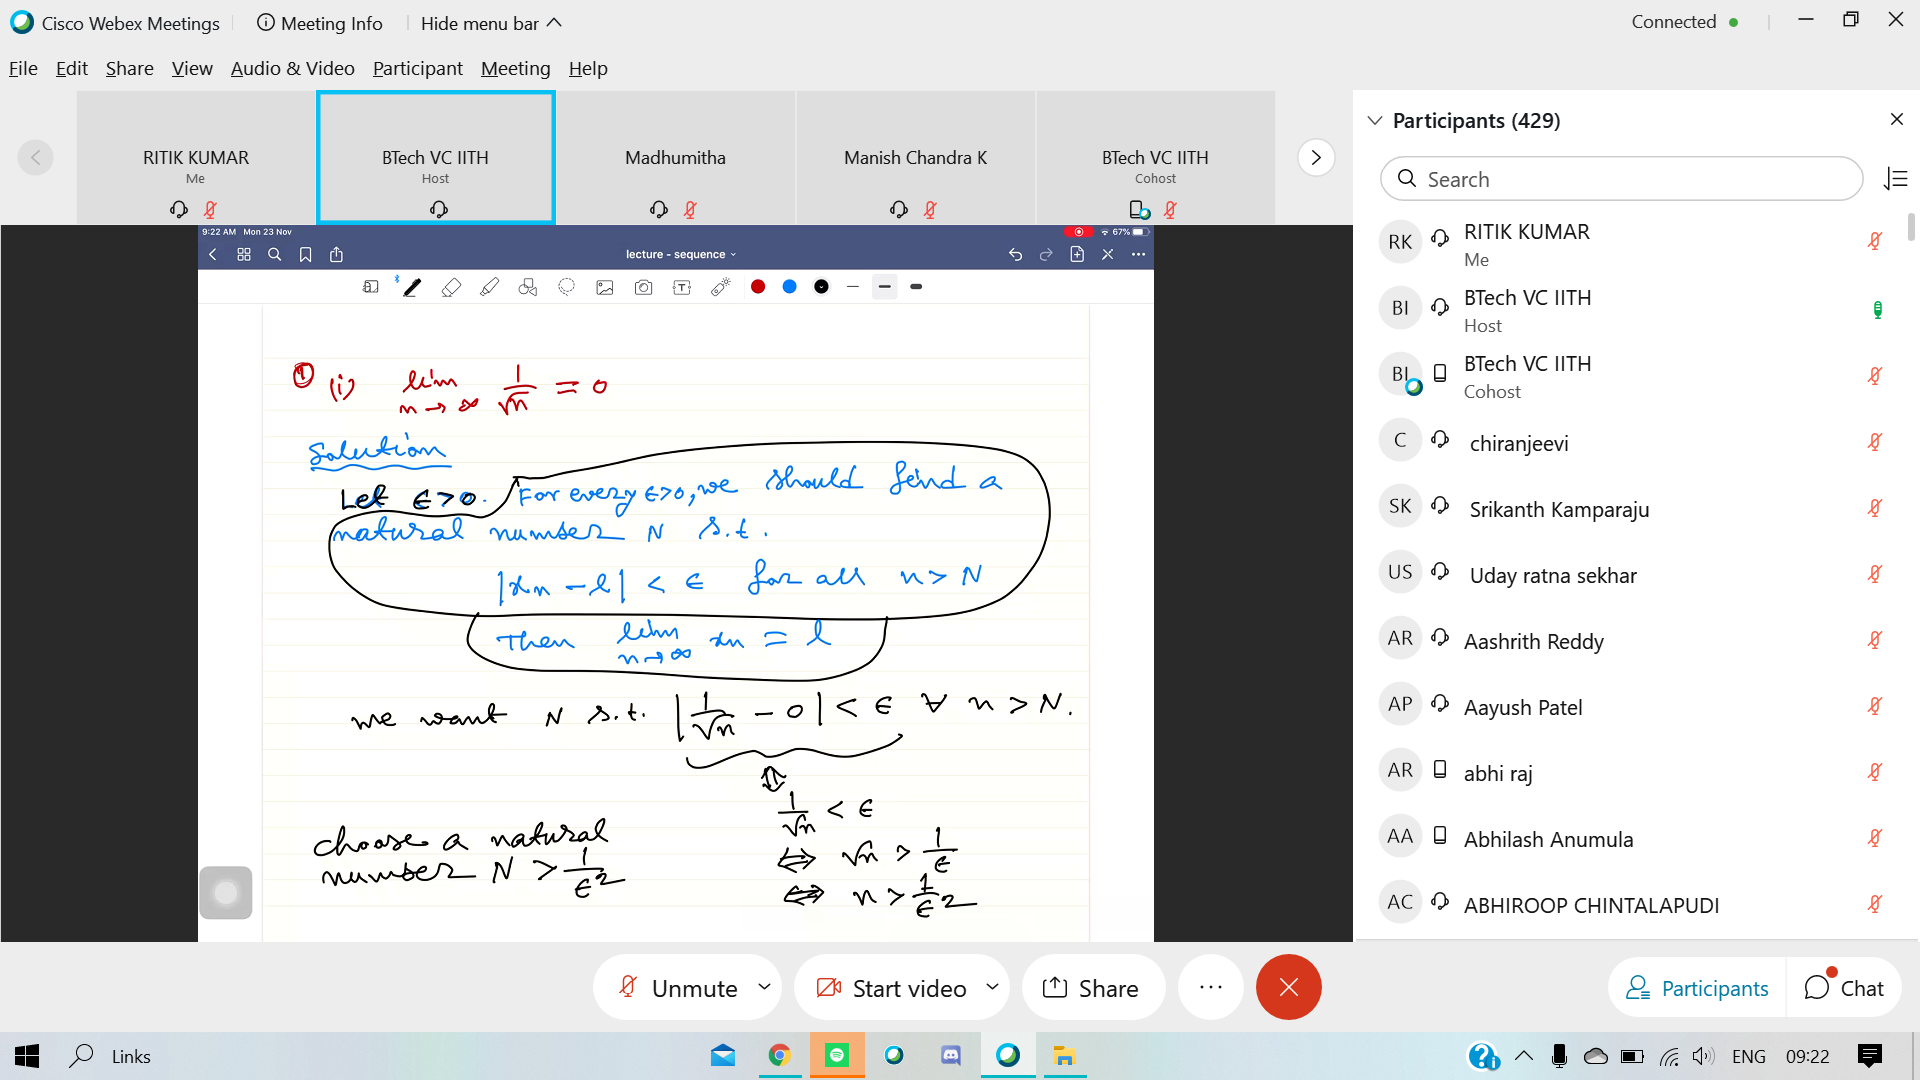 Cisco Webex Meetings Meeting Info Hide menu bar Connected
File Edit Share View Audio & Video Participant Meeting Help
RITIK KUMAR
Me
BTech VC IITH
Host
Madhumitha
Manish Chandra K
BTech VC IITH
Cohost
9:22 AM Mon 23 Nov 67%
lecture - sequence
① (i) lim n→∞ 1/√n = 0
Solution
Let ϵ>0. For every ϵ>0, we should find a
natural number N s.t.
|xn - l| < ϵ for all n > N
Then lim n→∞ xn = l
we want N s.t. |1/√n - 0| < ϵ ∀ n > N.
⇕
1/√n < ϵ
⇔ √n > 1/ϵ
⇔ n > 1/ϵ²
choose a natural
number N > 1/ϵ²
Participants (429)
Search
RK RITIK KUMAR
Me
BI BTech VC IITH
Host
BI BTech VC IITH
Cohost
C chiranjeevi
SK Srikanth Kamparaju
US Uday ratna sekhar
AR Aashrith Reddy
AP Aayush Patel
AR abhi raj
AA Abhilash Anumula
AC ABHIROOP CHINTALAPUDI
Unmute Start video Share Participants Chat
Links ENG 09:22